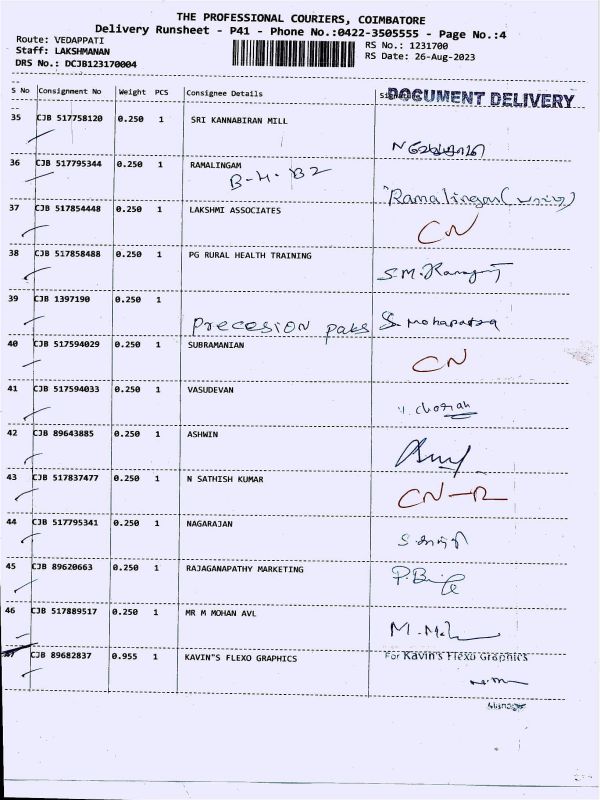 THE PROFESSIONAL COURIERS, COIMBATORE
Delivery Runsheet - P41 - Phone No.:0422-3505555 - Page No.:4
Route: VEDAPPATI
RS No.: 1231700
Staff: LAKSHMANAN
RS Date: 26-Aug-2023
DRS No.: DCJB123170004
S No Consignment No Weight PCS Consignee Details
DOCUMENT DELIVERY
35 CJB 517758120 0.250 1 SRI KANNABIRAN MILL
36 CJB 517795344 0.250 1 RAMALINGAM
B-H-B2
Ramalingam
37 CJB 517854448 0.250 1 LAKSHMI ASSOCIATES
CN
38 CJB 517858488 0.250 1 PG RURAL HEALTH TRAINING
S.M.
39 CJB 1397190 0.250 1
Precesion paks S. Mohapatra
40 CJB 517594029 0.250 1 SUBRAMANIAN
CN
41 CJB 517594033 0.250 1 VASUDEVAN
42 CJB 89643885 0.250 1 ASHWIN
43 CJB 517837477 0.250 1 N SATHISH KUMAR
CN-R
44 CJB 517795341 0.250 1 NAGARAJAN
45 CJB 89620663 0.250 1 RAJAGANAPATHY MARKETING
46 CJB 517889517 0.250 1 MR M MOHAN AVL
47 CJB 89682837 0.955 1 KAVIN"S FLEXO GRAPHICS
For Kavin's Flexo Graphics
Manager